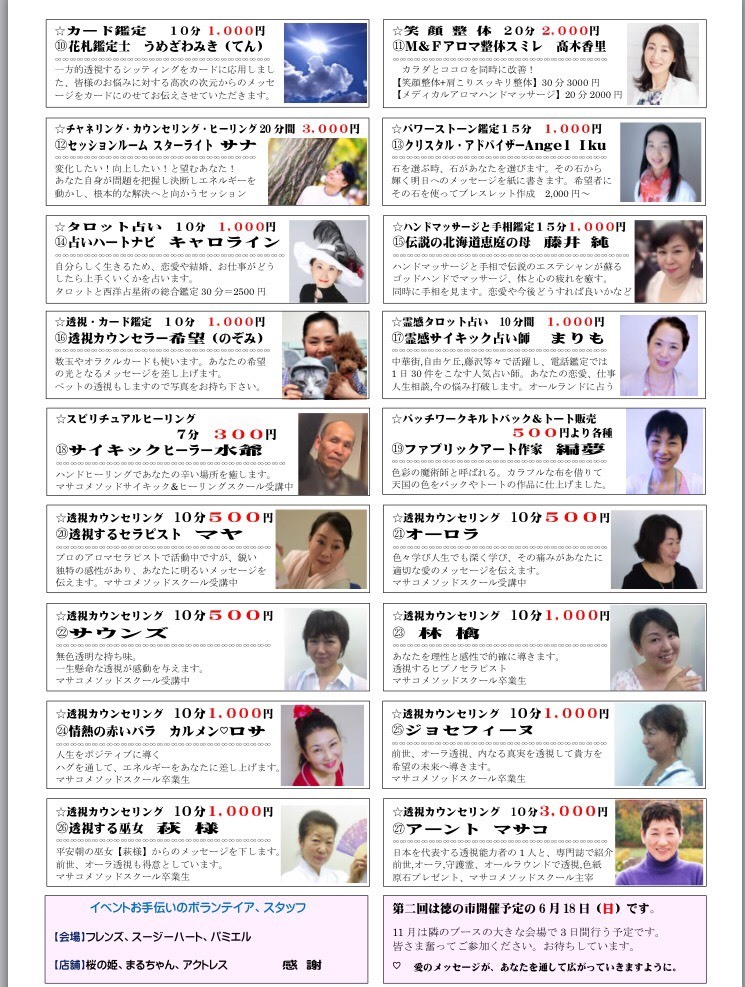 ☆カード鑑定　10分 1,000円
⑩花札鑑定士　うめざわみき（てん）
一方的透視するシッティングをカードに応用しまし
た、皆様のお悩みに対する高次の次元からのメッセ
ージをカードにのせてお伝えさせていただきます。
☆笑 顔 整 体　20分 2,000円
⑪M&Fアロマ整体スミレ　髙木香里
カラダとココロを同時に改善！
【笑顔整体+肩こりスッキリ整体】30分3000円
【メディカルアロマハンドマッサージ】20分2000円
☆チャネリング・カウンセリング・ヒーリング20分間 3,000円
⑫セッションルーム スターライト サナ
変化したい！向上したい！と望むあなた！
あなた自身が問題を把握し決断しエネルギーを
動かし、根本的な解決へと向かうセッション
☆パワーストーン鑑定15分　1,000円
⑬クリスタル・アドバイザーAngel Iku
石を選ぶ時、石があなたを選びます。その石から
輝く明日へのメッセージを紙に書きます。希望者に
その石を使ってブレスレット作成　2,000円〜
☆タロット占い　10分　1,000円
⑭占いハートナビ　キャロライン
自分らしく生きるため、恋愛や結婚、お仕事がどう
したら上手くいくかを占います。
タロットと西洋占星術の総合鑑定30分＝2500円
☆ハンドマッサージと手相鑑定15分1,000円
⑮伝説の北海道恵庭の母　藤井 純
ハンドマッサージと手相で伝説のエステシャンが蘇る
ゴッドハンドでマッサージ、体と心の疲れを癒す。
同時に手相を見ます。恋愛や今後どうすれば良いかなど
☆透視・カード鑑定　10分　1,000円
⑯透視カウンセラー希望（のぞみ）
数玉やオラクルカードも使います。あなたの希望
の光となるメッセージを差し上げます。
ペットの透視もしますので写真をお持ち下さい。
☆霊感タロット占い　10分間　1,000円
⑰霊感サイキック占い師　まりも
中華街,自由ケ丘,藤沢等々で活躍し、電話鑑定では
1日30件をこなす人気占い師。あなたの恋愛、仕事
人生相談,今の悩み打破します。オールランドに占う
☆スピリチュアルヒーリング
7分　300円
⑱サイキックヒーラー水爺
ハンドヒーリングであなたの辛い場所を癒します。
マサコメソッドサイキック&ヒーリングスクール受講中
☆パッチワークキルトバック&トート販売
500円より各種
⑲ファブリックアート作家　絹夢
色彩の魔術師と呼ばれる。カラフルな布を借りて
天国の色をバックやトートの作品に仕上げました。
☆透視カウンセリング　10分500円
⑳透視するセラピスト　マヤ
プロのアロマセラピストで活動中ですが、鋭い
独特の感性があり、あなたに明るいメッセージを
伝えます。マサコメソッドスクール受講中
☆透視カウンセリング　10分500円
㉑オーロラ
色々学び人生でも深く学び、その痛みがあなたに
適切な愛のメッセージを伝えます。
マサコメソッドスクール受講中
☆透視カウンセリング　10分500円
㉒サウンズ
無色透明な持ち味。
一生懸命な透視が感動を与えます。
マサコメソッドスクール受講中
☆透視カウンセリング　10分1,000円
㉓　林 檎
あなたを理性と感性で的確に導きます。
透視するヒプノセラピスト
マサコメソッドスクール卒業生
☆透視カウンセリング　10分1,000円
㉔情熱の赤いバラ　カルメン♡ロサ
人生をポジティブに導く
ハグを通して、エネルギーをあなたに差し上げます。
マサコメソッドスクール卒業生
☆透視カウンセリング　10分1,000円
㉕ジョセフィーヌ
前世、オーラ透視、内なる真実を透視して貴方を
希望の未来へ導きます。
マサコメソッドスクール卒業生
☆透視カウンセリング　10分1,000円
㉖透視する巫女　萩 様
平安朝の巫女【萩様】からのメッセージを下します。
前世、オーラ透視も得意としています。
マサコメソッドスクール卒業生
☆透視カウンセリング　10分3,000円
㉗アーント マサコ
日本を代表する透視能力者の1人と、専門誌で紹介
前世,オーラ,守護霊、オールラウンドで透視,色紙
原石プレゼント、マサコメソッドスクール主宰
イベントお手伝いのボランテイア、スタッフ
【会場】フレンズ、スージーハート、パミエル
【店舗】桜の姫、まるちゃん、アクトレス　　感 謝
第二回は徳の市開催予定の6月18日（日）です。
11月は隣のブースの大きな会場で3日間行う予定です。
皆さま奮ってご参加ください。お待ちしています。
♡　愛のメッセージが、あなたを通して広がっていきますように。